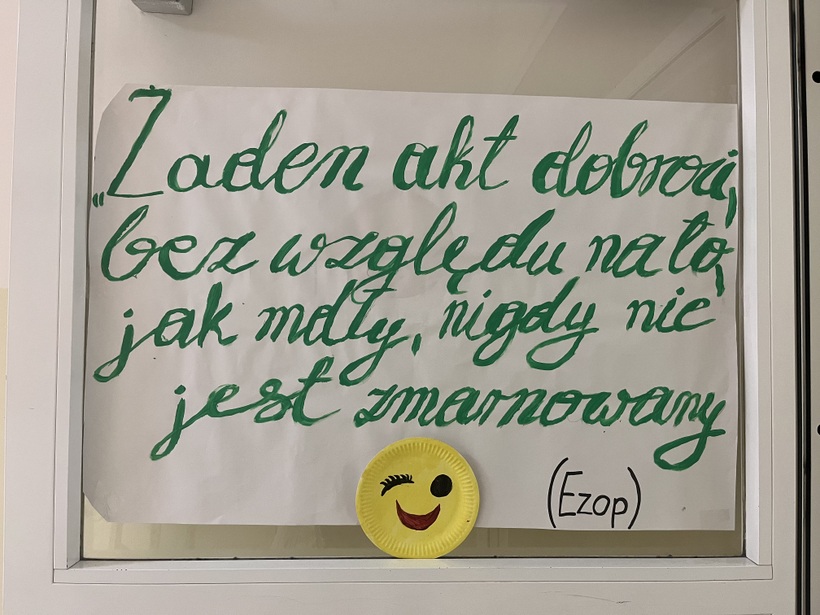 „Żaden akt dobroci,
bez względu na to,
jak mdły, nigdy nie
jest zmarnowany
(Ezop)